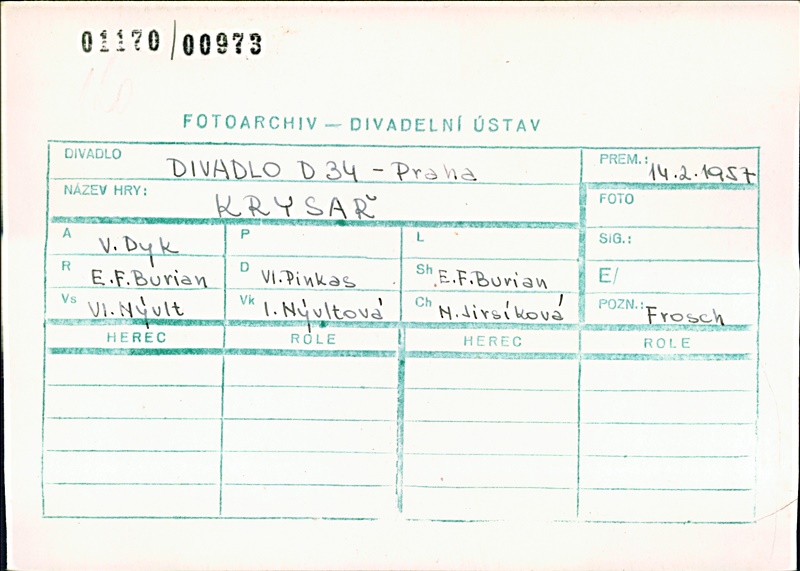 01170/00973
FOTOARCHIV — DIVADELNÍ ÚSTAV
DIVADLO DIVADLO D 34 - Praha PREM.: 14.2.1957
NÁZEV HRY: KRYSAŘ FOTO
A V. Dyk P L SIG.:
R E.F. Burian D Vl. Pinkas Sh E.F. Burian E/
Vs Vl. Nývlt Vk I. Nývltová Ch M. Jirsíková POZN.: Frosch
HEREC ROLE HEREC ROLE